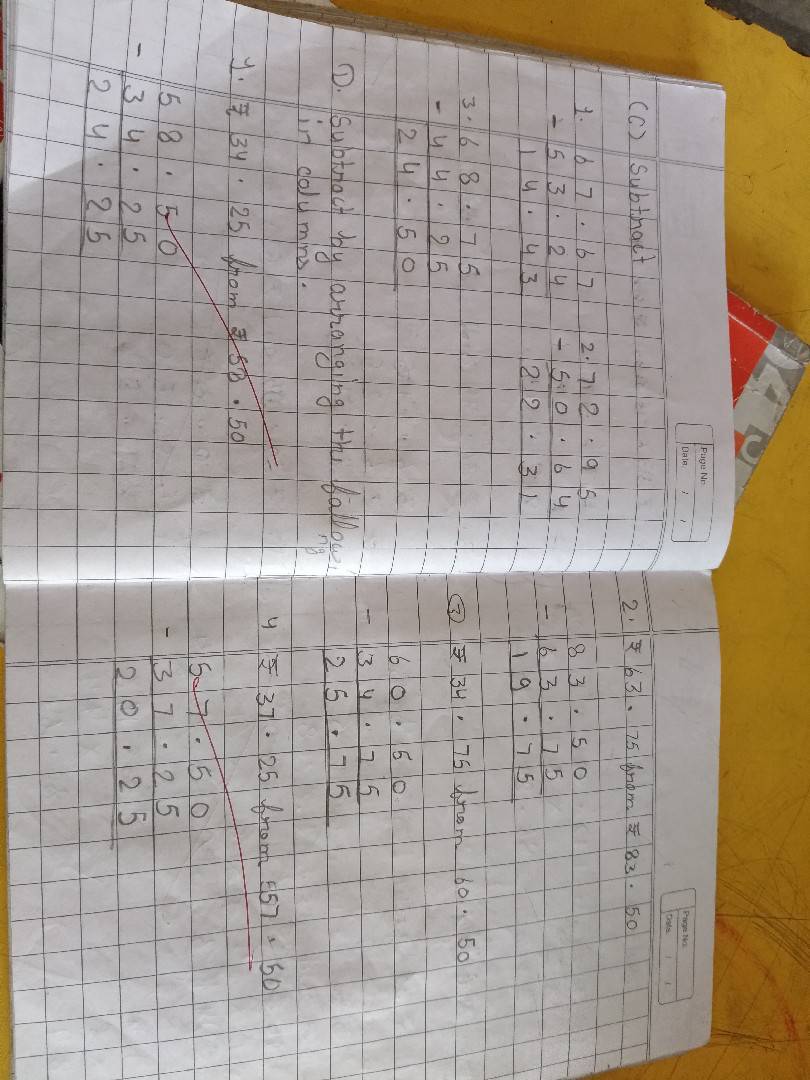 Page No.
Date: / /
(C) Subtract
1. 67.67 2. 72.95
- 53.24 - 50.64
14.43 22.31
3. 68.75
- 44.25
24.50
D. Subtract by arranging the fallowing
in columns.
1. ₹ 34.25 from ₹ 58.50
58.50
- 34.25
24.25
Page No.
Date: / /
2. ₹ 63.75 from ₹ 83.50
83.50
- 63.75
19.75
3 ₹ 34.75 from 60.50
60.50
- 34.75
25.75
4 ₹ 37.25 from 557.50
57.50
- 37.25
20.25